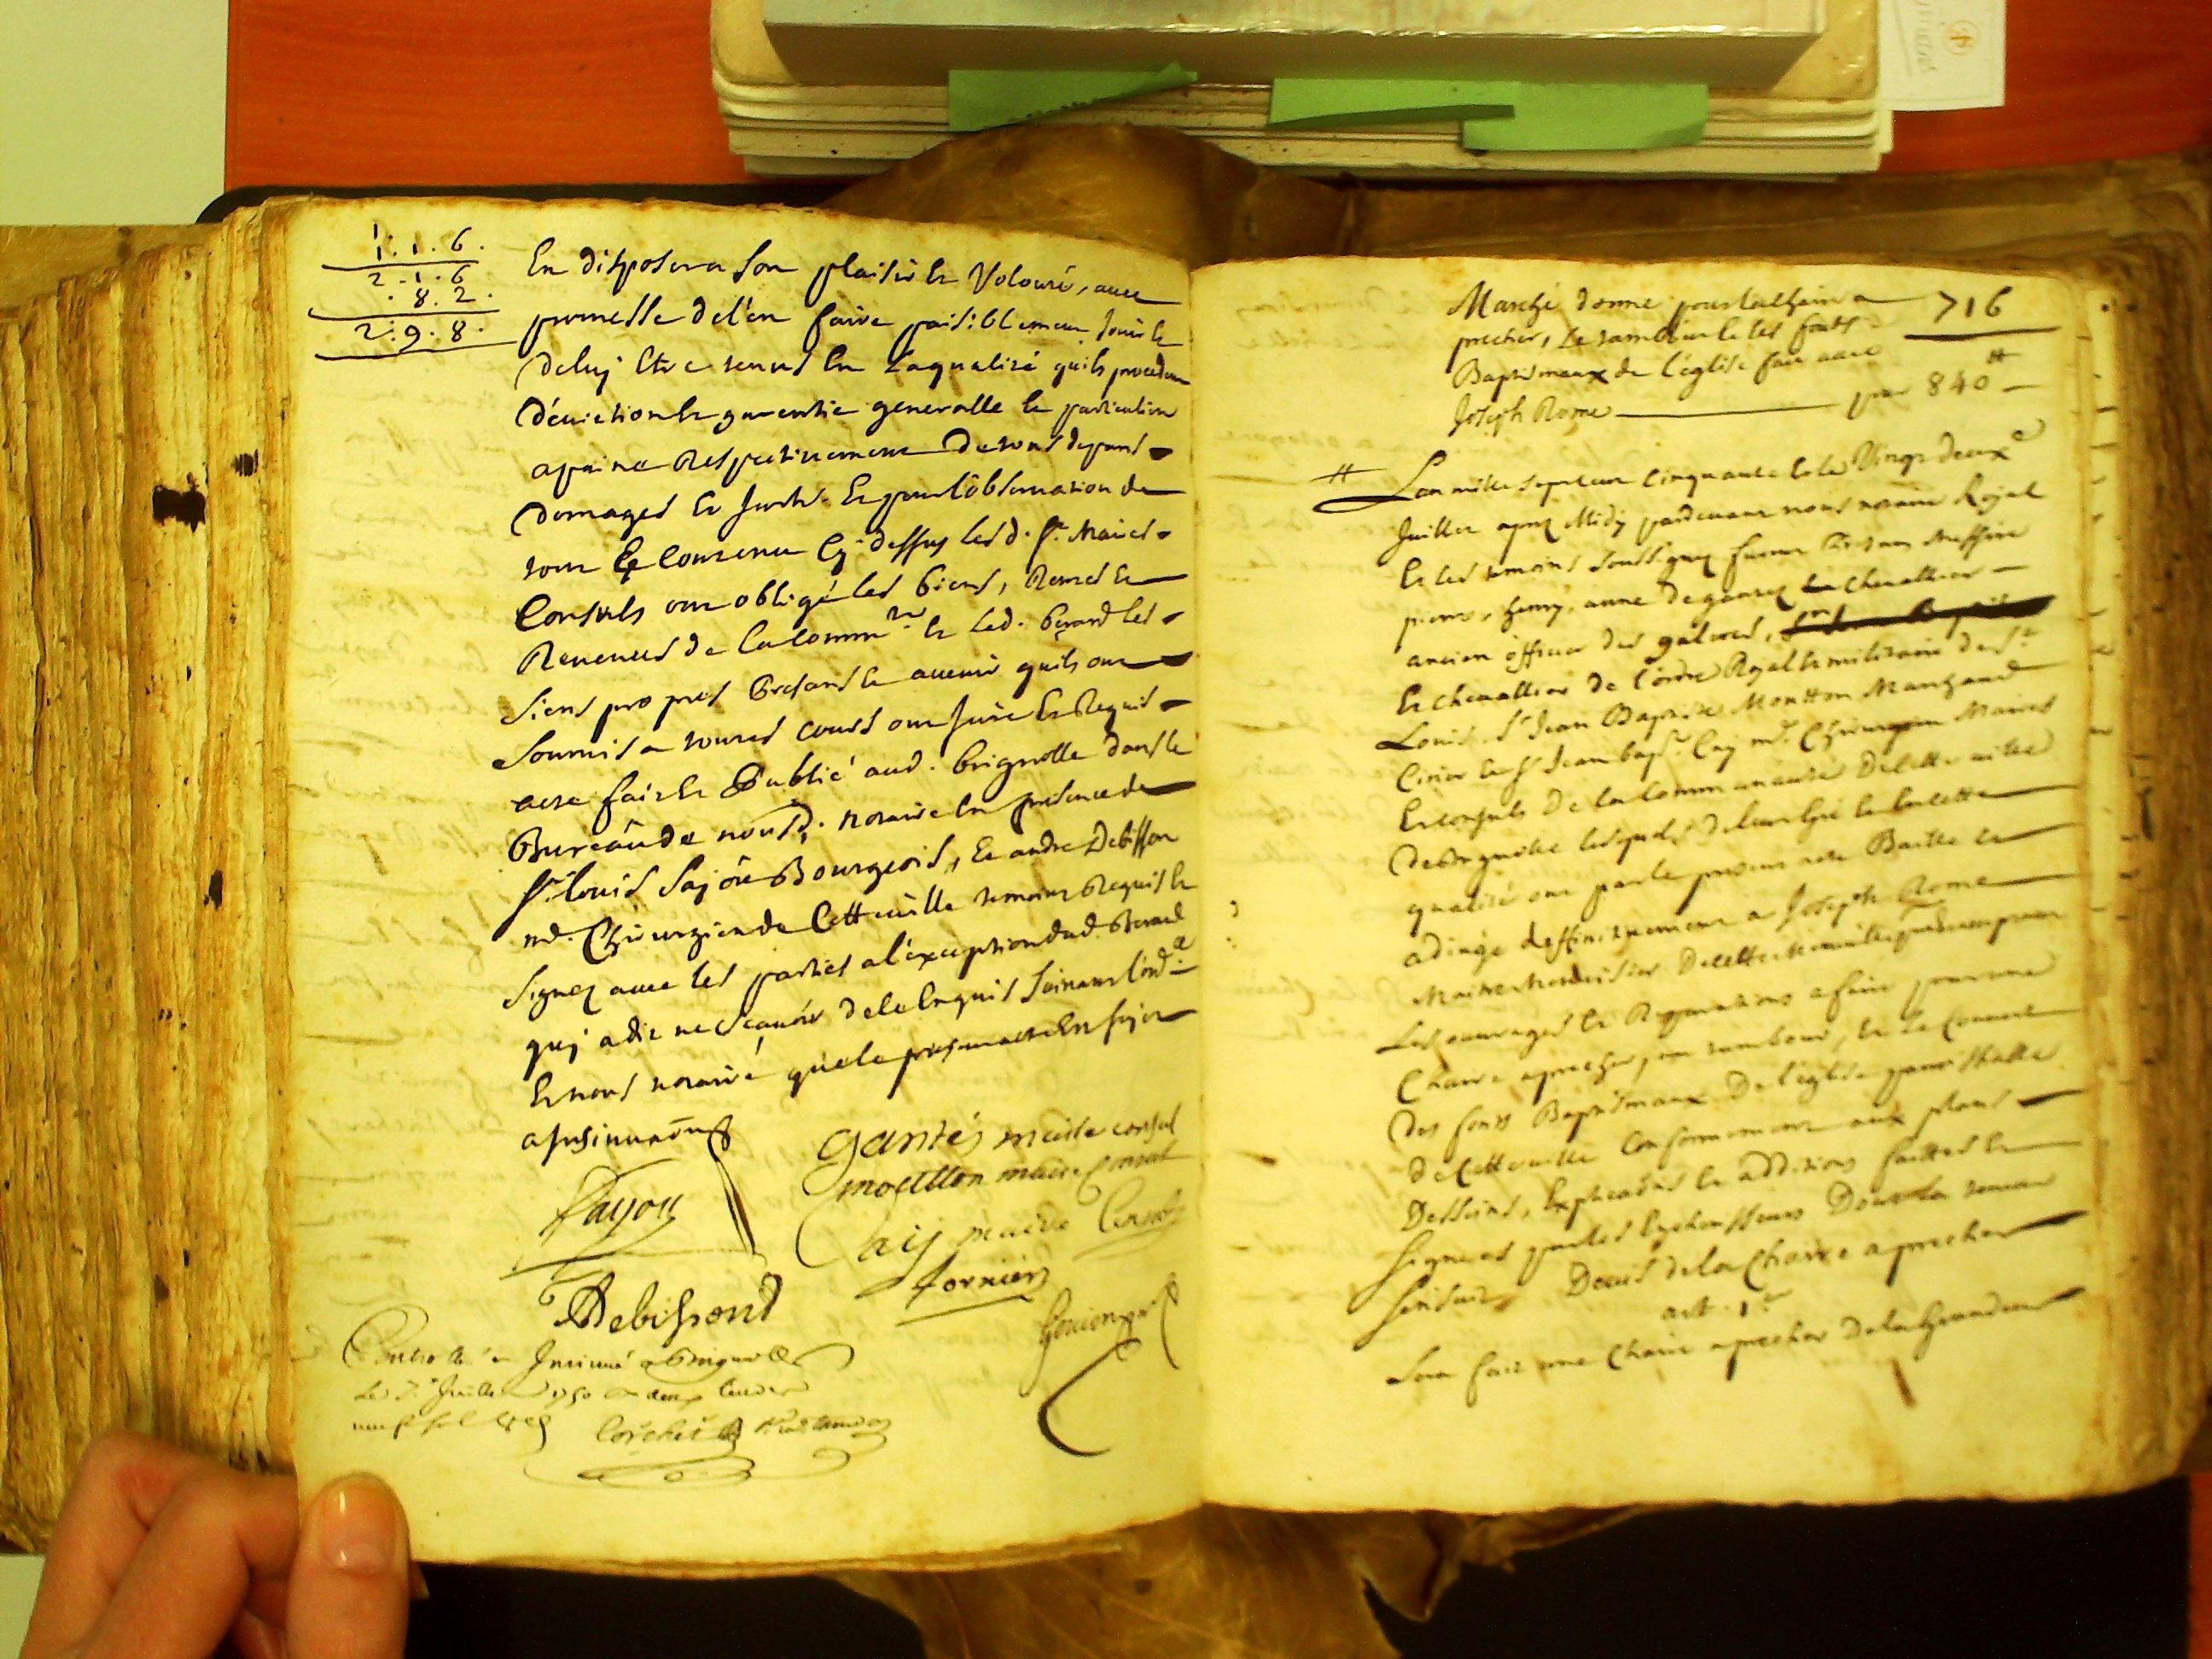 1. 1. 6.
2. 1. 6
. 8. 2.
2. 9. 8.
En disposer a son plaisir et Volonté, avec
promesse de l'en faire paisiblement jouir et
de luy Etre tenus En la qualité quils procedent
d'eviction et garentie generalle et particuliere
a peine Respectivement De tous depans
Domages et Inths. Et pour l'observation de
tout Le Contenu Cy dessus les d. srs. Maires
Consuls ont obligé les biens, Rentes et
Revenus de la Commté. et led. les
siens propres presans et avenir quils ont
soumis a toutes cours ont Juré Et Requis
acte fait et Publié aud. brignolle dans le
Bureau de nousd. notaire En presence de
sr. louis fajou Bourgeois, Et andre Debisson
md. Chirurgien de Cette ville temoins Requis et
signez avec les parties a l'exception dud.
quj a dit ne sçavoir de ce Enquis suivant l'ordce
Et nous notaire que le presant acte Est sujet
a Insinuaon
gantés maire consul
moutton maire Consul
Fayou
Caij maire Consul
Debisson
fornier
Controllé et Insinué a Brignolle
Le Juillet 1750 deux livres
neuf sols
Marché donné pour la chaire a
716
precher, Le tambour et les fonts
Baptismaux de l'église fait avec
Joseph Rome — par 840 ₶
L'an mille sept cent Cinquante Et le Vingt deuxe
Juillet apres Midy pardevant nous notaire Royal
Et les temoins soussignez furent presens Messire
pierre, henry, anne de gantez Chevallier
ancien officier des galeres,
Et chevallier de l'ordre Royal et militaire de st
Louis, sr Jean Baptiste Moutton Marchand
Cirier et sr Jean bapte. Caij me. Chirurgien Maires
Et consuls De la Communauté De cette ville
De Brignolle lesquels de leur gré En cette
qualité ont par le presant acte Baillé et
adjugé deffinitivement a Joseph Rome
Maitre Menuisier De cette ville presant
Les ouvrages et Reparations a faire pour une
Chaire a precher, un tambour, et Le Couvert
Des fonts Baptismaux De l'eglise parroissialle
de Cette ville Conformement aux plans
Desseins, Explications et additions faittes et
signees par les Encherisseurs Dont la teneur
sensuit Devis de la Chaire a precher
art. 1r
Sera fait une Chaire a precher De la grandeur